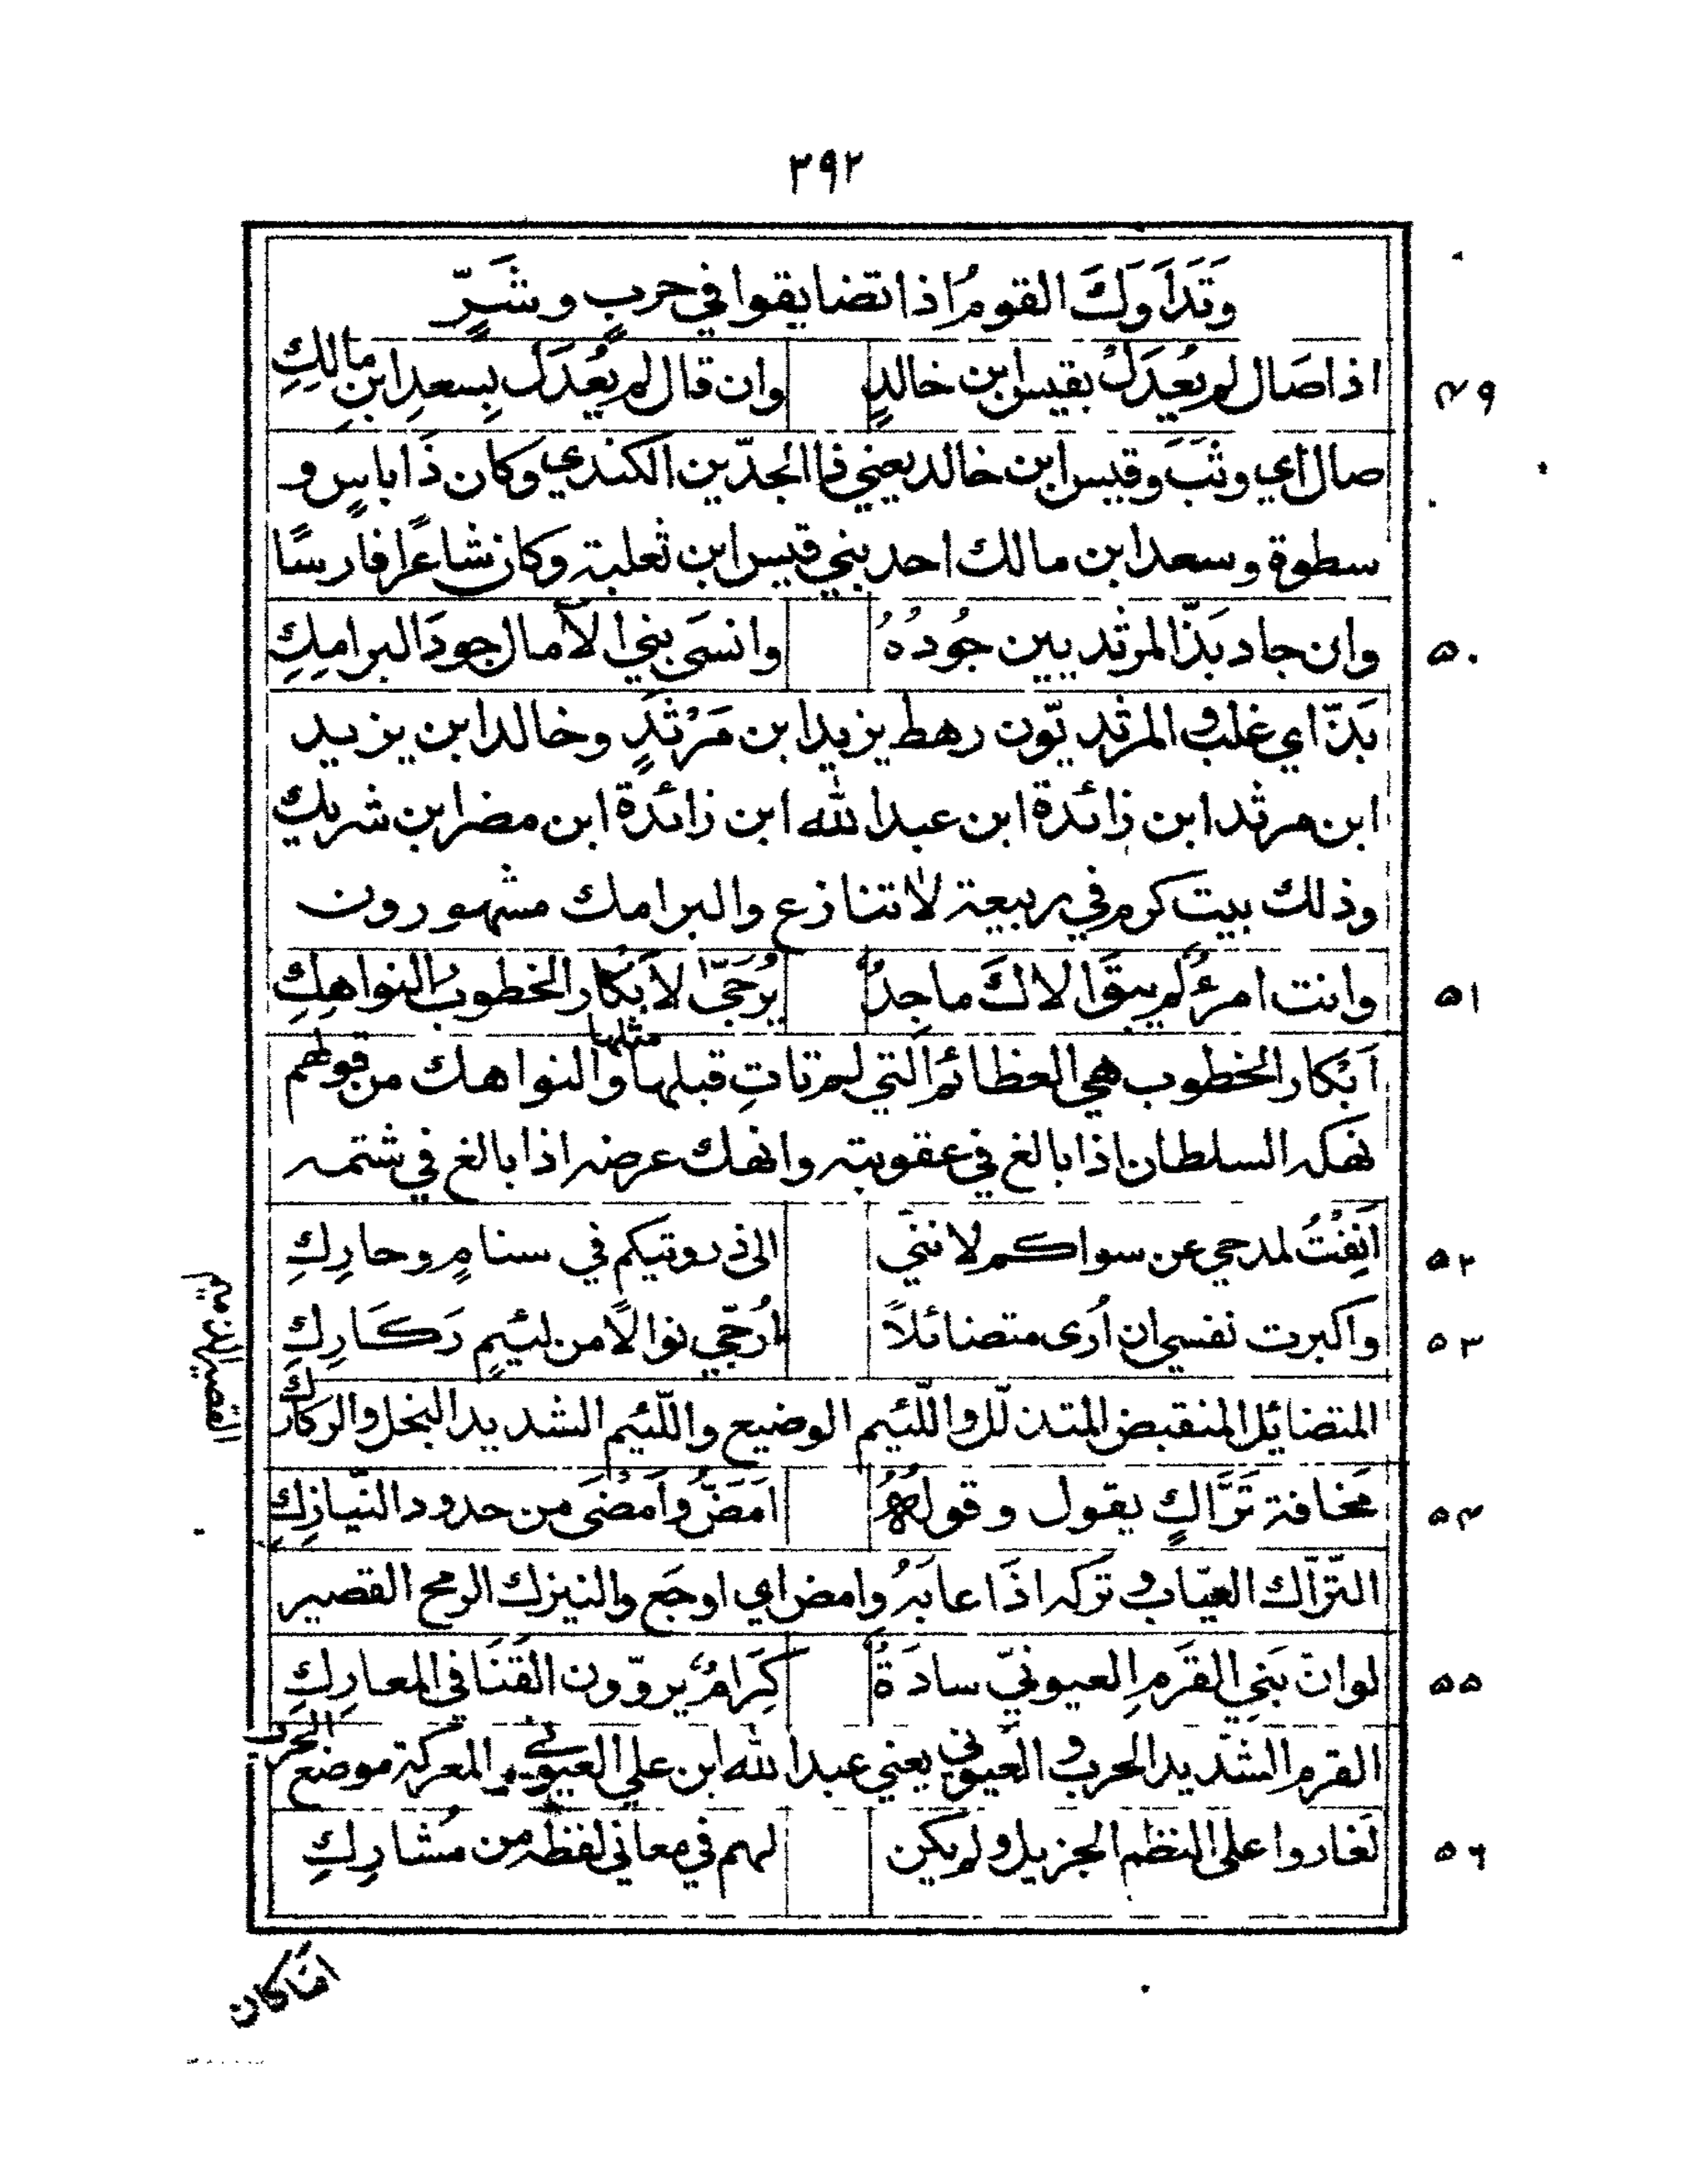 ٣٩٢
وَتَدَاوَكَ القومُ اذا تضايقوا في حربٍ وشَرٍّ
اذا صَال لم يُعدَل بقيس ابن خالدٍ وان قال لم يُعدَل بِسعدِ ابنِ مالكِ ٤٩
صال اي وثَبَ وقيس ابن خالد يعني ذا الجدّين الكندي وكان ذا باسٍ و
سطوة وسعد ابن مالك احد بني قيس ابن ثعلبة وكان شاعرًا فارسًا
وان جاد بَذّ المرثديين جُودُهُ وانسَى بني الآمال جودَ البرامِكِ ٥٠
بَذّ اي غلب والمرثديّون رهط يزيد ابن مَرْثَدٍ وخالد ابن يزيد
ابن مرثد ابن زائدة ابن عبد الله ابن زائدة ابن مضر ابن شريك
وذلك بيت كرم في ربيعة لا تنازع والبرامك مشهورون
وانت امرءٌ لم يبقَ الاكَ ماجدٌ يُرجَّى لاَبكار الخطوب النواهِكِ ٥١
اَبْكار الخطوب هي العظائم التي لم تاتِ قبلها مثلها والنواهك من قولهم
نهكه السلطان اذا بالغ في عقوبته وانهك عرضه اذا بالغ في شتمه
اَنِفْتُ لمدحي عن سواكم لانني الى ذروتيكم في سنامٍ وحارِكِ ٥٢
واكبرت نفسي ان اُرى متضائلاً اُرجّي نوالًا من لئيمٍ رَكَارِكِ ٥٣
المتضائل المنقبض المتذلّل واللّئيم الوضيع واللّئيم الشديد البخل والركارك
القصير الذميم
مخافة تَرَّاكٍ يقول وقولهُ اَمَضُّ واَمْضَى من حدود النّيازِكِ ٥٤
التّرّاك العيّاب وتركه اذا عابَهُ وامض اي اوجَع والنيزك الرمح القصير
لوانّ بَنِي القَرمِ العيونيّ سادَةٌ كِرَامٌ يروّون القَنَا في المعارِكِ ٥٥
القرم الشّديد الحرب والعيوني يعني عبد الله ابن علي العيوني والمعركة موضع الحرب
لَغاروا على النظم الجزيل ولم يكن لهم في معاني لفظه من مُشارِكِ ٥٦
امّا كان